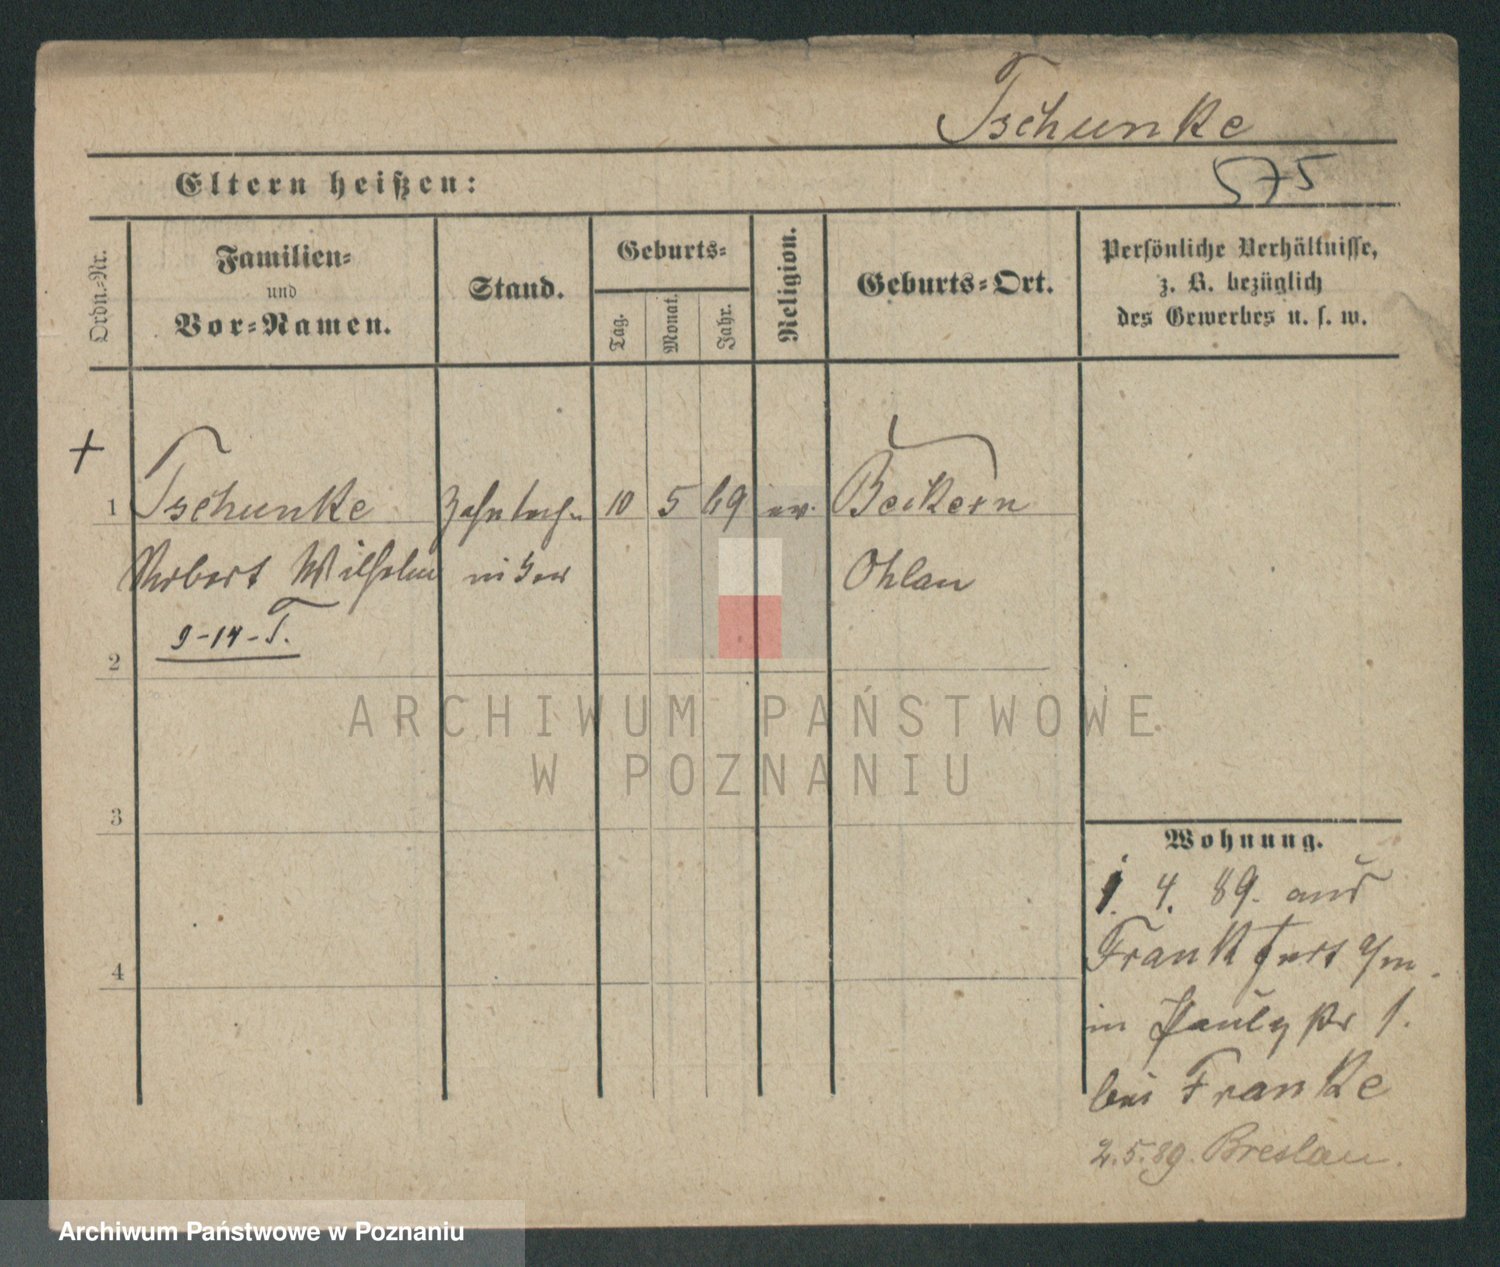 Tschunke
Eltern heißen:
575
Ordn.-Nr.
Familien-
und
Vor-Namen.
Stand.
Geburts-
Tag.
Monat.
Jahr.
Religion.
Geburts-Ort.
Persönliche Verhältnisse,
z. B. bezüglich
des Gewerbes u. s. w.
+
1 Tschunke Zahntech- 10 5 69 ev. Beckern
Norbert Wilhelm niker Ohlau
9-14-T.
2
3
4
Wohnung.
1. 4. 89. aus
Frankfurt a/m.
in Pauly 1.
bei Franke
2.5.89. Breslau.
ARCHIWUM PAŃSTWOWE
W POZNANIU
Archiwum Państwowe w Poznaniu